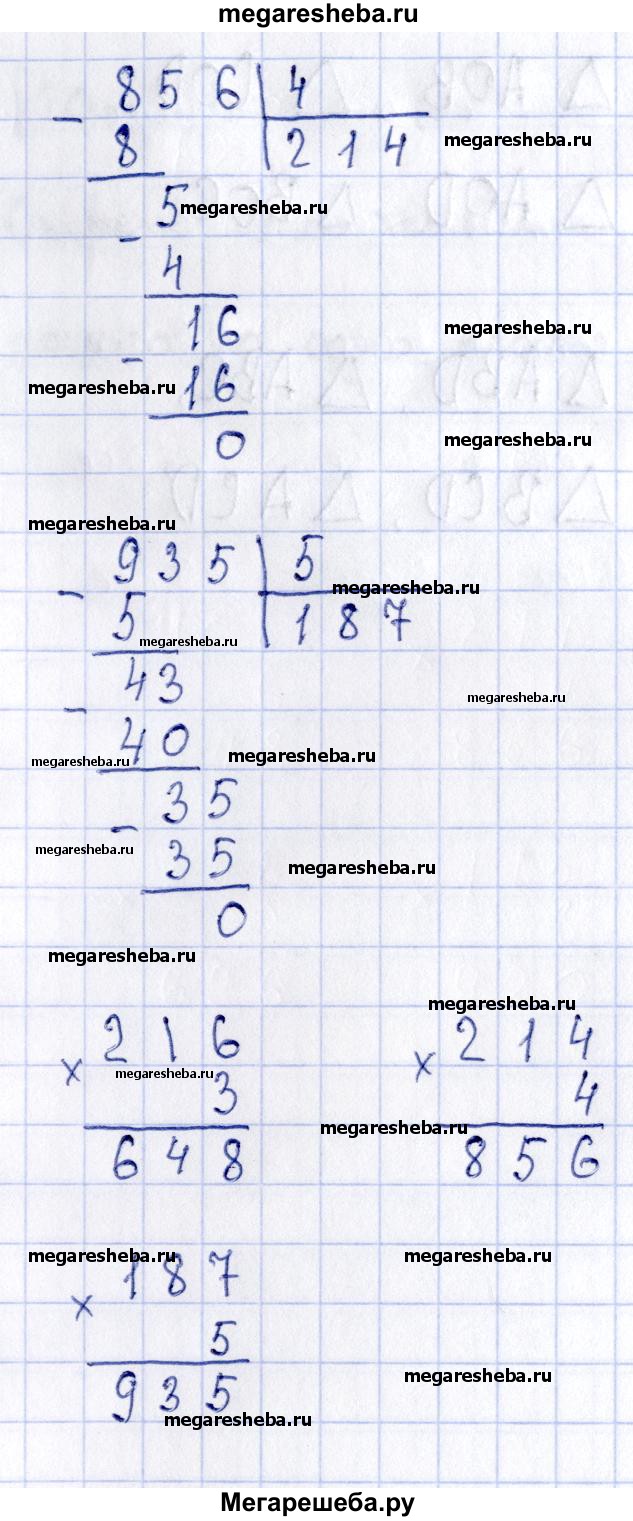 megaresheba.ru
8 5 6 | 4
- 8 2 1 4 megaresheba.ru
5 megaresheba.ru
- 4
1 6 megaresheba.ru
- 1 6
megaresheba.ru
0 megaresheba.ru
megaresheba.ru
9 3 5 | 5
megaresheba.ru
- 5 1 8 7
megaresheba.ru
4 3 megaresheba.ru
- 4 0
megaresheba.ru megaresheba.ru
3 5
- 3 5
megaresheba.ru megaresheba.ru
0
megaresheba.ru
megaresheba.ru
2 1 6 2 1 4
× 3 × 4
megaresheba.ru
megaresheba.ru
6 4 8 8 5 6
megaresheba.ru megaresheba.ru
1 8 7
× 5
megaresheba.ru
9 3 5
megaresheba.ru
Мегарешеба.ру